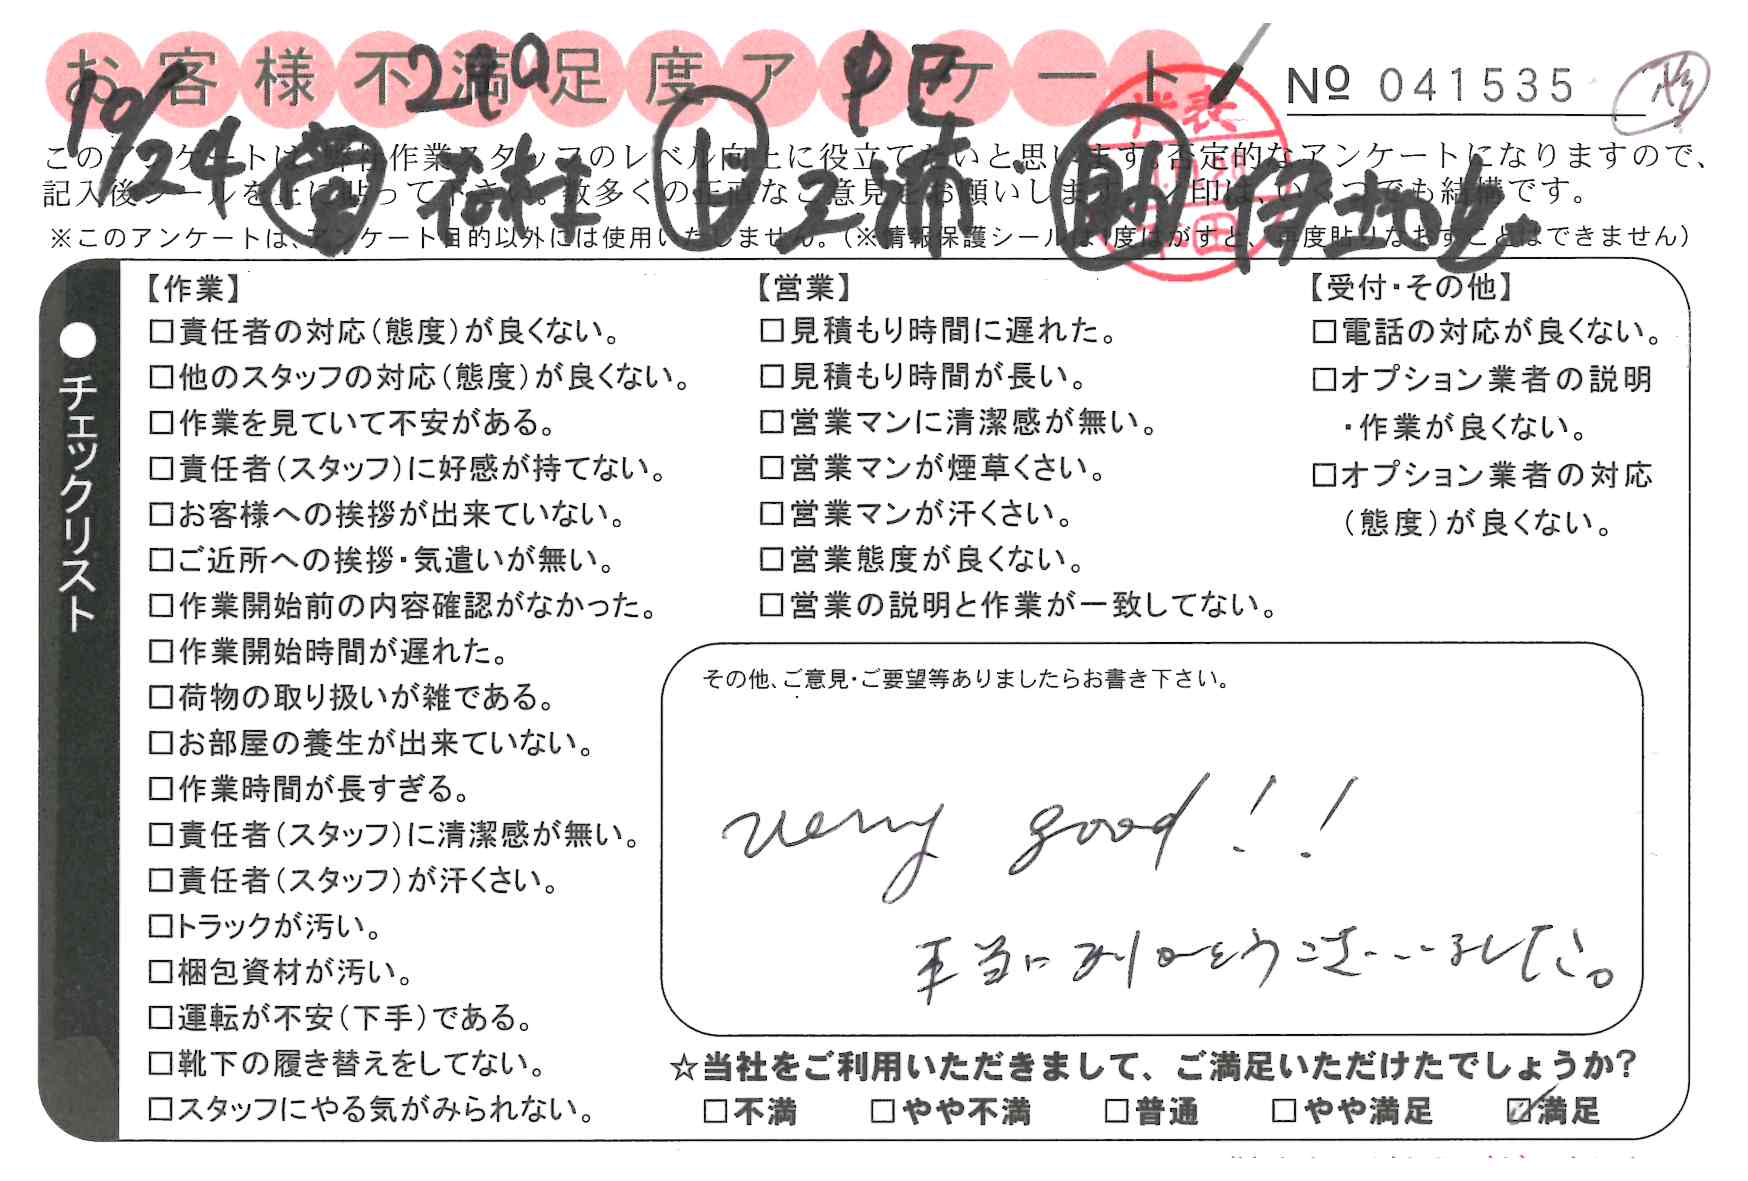 お客様不満足度アンケート
№ 041535
10/24
このアンケートは、弊社作業スタッフのレベル向上に役立てたいと思います。否定的なアンケートになりますので、
記入後シールを上に貼って下さい。数多くの正直なご意見をお願いします。✓印は、いくつでも結構です。
※このアンケートは、アンケート目的以外には使用いたしません。(※情報保護シールは1度はがすと、再度貼りなおすことはできません)
●チェックリスト
【作業】
□責任者の対応(態度)が良くない。
□他のスタッフの対応(態度)が良くない。
□作業を見ていて不安がある。
□責任者(スタッフ)に好感が持てない。
□お客様への挨拶が出来ていない。
□ご近所への挨拶・気遣いが無い。
□作業開始前の内容確認がなかった。
□作業開始時間が遅れた。
□荷物の取り扱いが雑である。
□お部屋の養生が出来ていない。
□作業時間が長すぎる。
□責任者(スタッフ)に清潔感が無い。
□責任者(スタッフ)が汗くさい。
□トラックが汚い。
□梱包資材が汚い。
□運転が不安(下手)である。
□靴下の履き替えをしてない。
□スタッフにやる気がみられない。
【営業】
□見積もり時間に遅れた。
□見積もり時間が長い。
□営業マンに清潔感が無い。
□営業マンが煙草くさい。
□営業マンが汗くさい。
□営業態度が良くない。
□営業の説明と作業が一致してない。
【受付・その他】
□電話の対応が良くない。
□オプション業者の説明
・作業が良くない。
□オプション業者の対応
(態度)が良くない。
その他、ご意見・ご要望等ありましたらお書き下さい。
very good!!
本当にありがとうございました。
☆当社をご利用いただきまして、ご満足いただけたでしょうか?
□不満 □やや不満 □普通 □やや満足 ☑満足